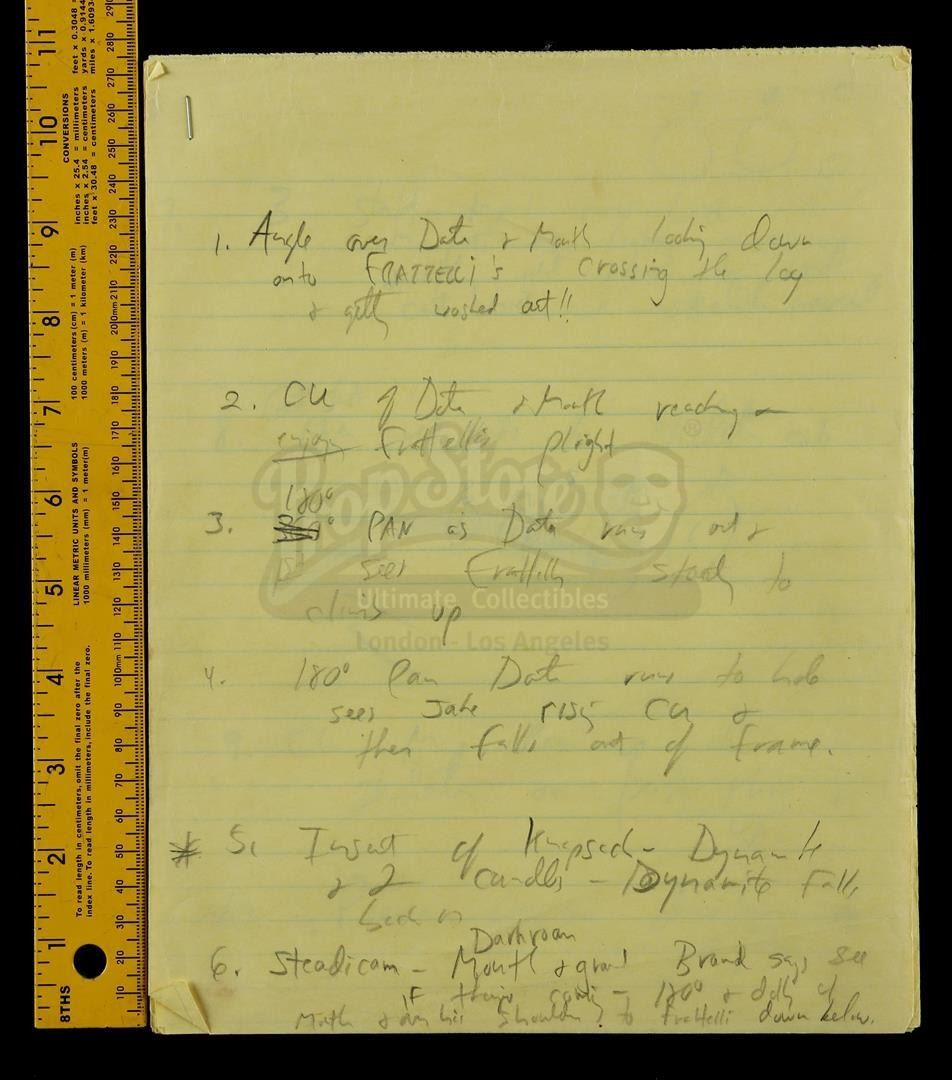 1. Angle over Data & Mouth looking down
onto FRATTELLI's crossing the log
& gettg washed out!!
2. CU of Data & Mouth reacting
enjoy Frattellis plight
180°
3. 360° PAN as Data runs out &
sees Frattellis to
climb up
4. 180° Pan Data runs to hole
sees Jake rising CU &
then falls out of frame.
* 5. Insert of Knapsack - Dynamite
& 2 candles - Dynamite falls
back in
Darkroom
6. Steadicam - Mouth & Brand says see
if 180° & dolly of
Mouth & over his shoulder to Frattelli down below.
PropStore
®
Ultimate Collectibles
London - Los Angeles
CONVERSIONS
inches x 25.4 = millimeters
inches x 2.54 = centimeters
feet x 30.48 = centimeters
feet x 0.3048 =
yards x 0.9144
miles x 1.6093
100 centimeters (cm) = 1 meter (m)
1000 meters (m) = 1 kilometer (km)
LINEAR METRIC UNITS AND SYMBOLS
1000 millimeters (mm) = 1 meter(m)
To read length in centimeters, omit the final zero after the
index line. To read length in millimeters, include the final zero.
8THS
1 2 3 4 5 6 7 8 9 10 11
10 20 30 40 50 60 70 80 90 100mm 110 120 130 140 150 160 170 180 190 200mm 210 220 230 240 250 260 270 280 290